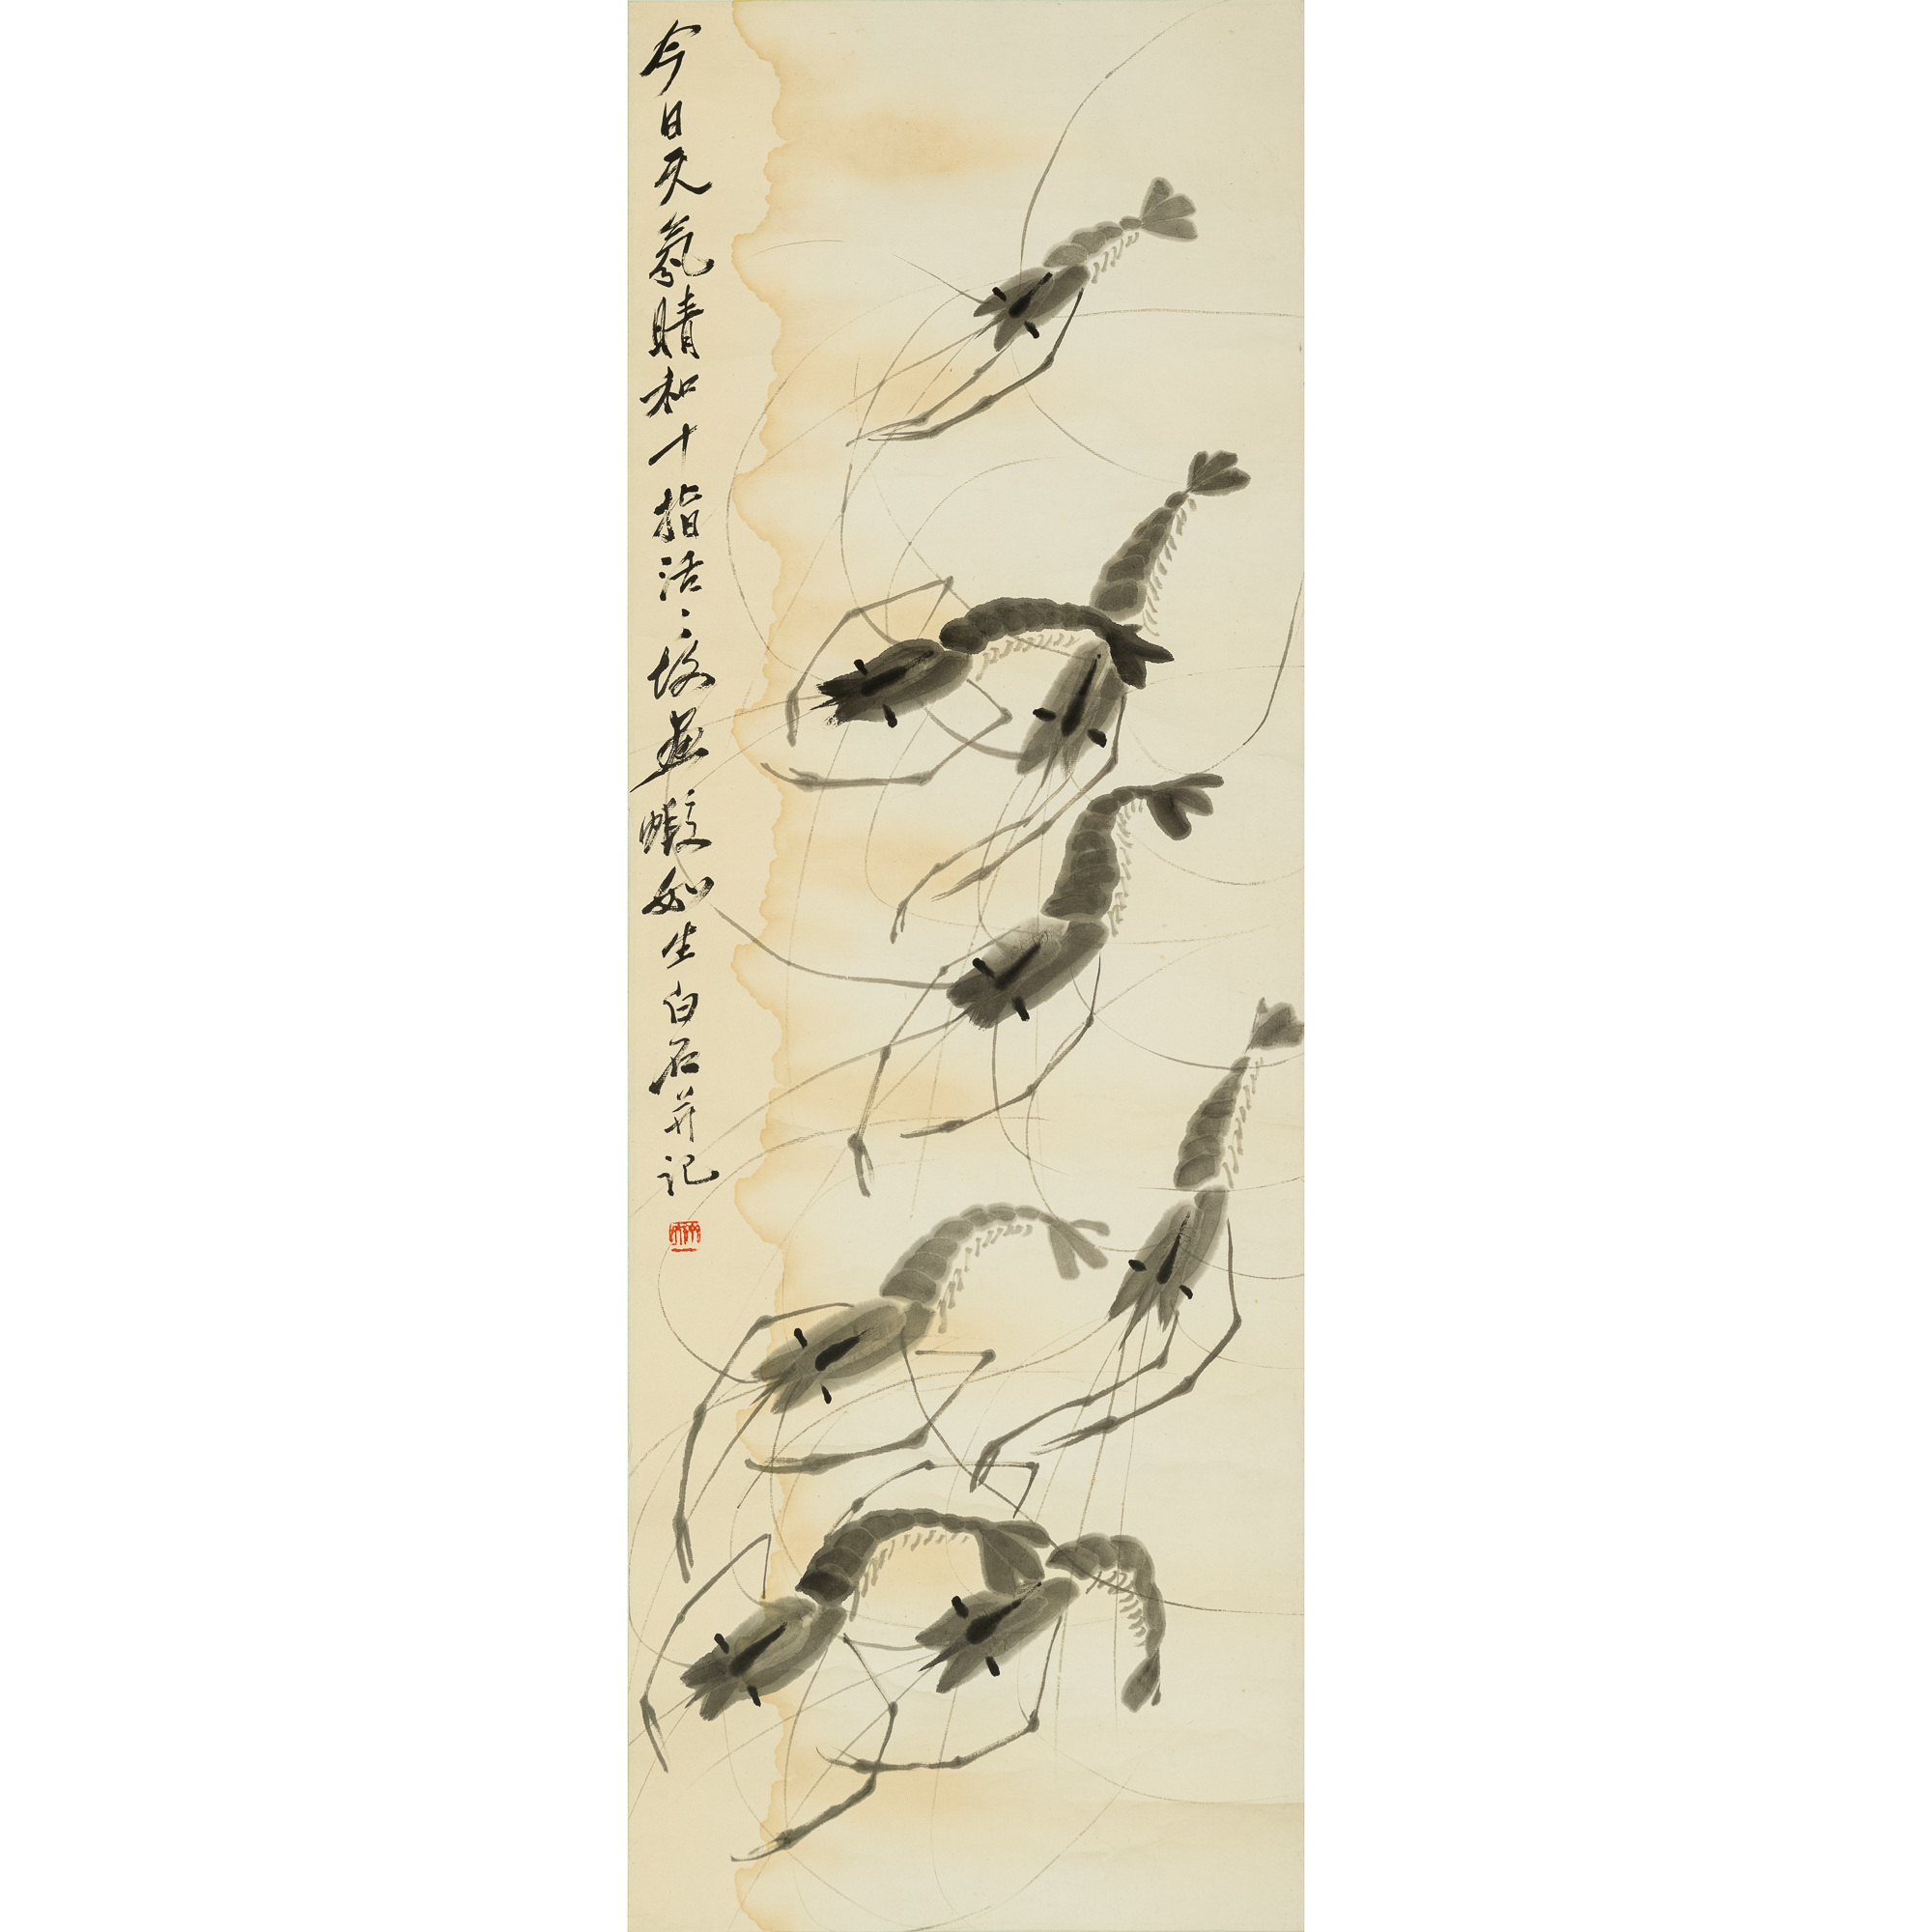 今日天氣晴和十指活〻故畫蝦如生白石并記